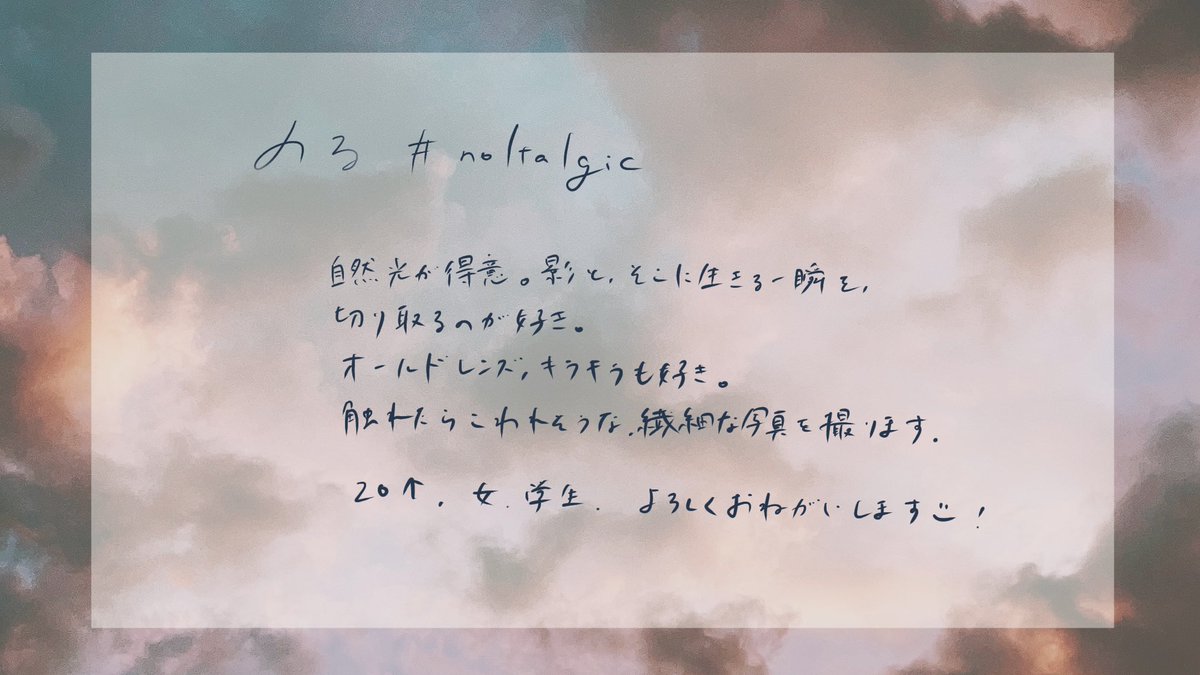 のる #noltalgic
自然光が得意。影と、そこに生きる一瞬を、
切り取るのが好き。
オールドレンズ、キラキラも好き。
触れたらこわれそうな、繊細な写真を撮ります。
20↑. 女. 学生. よろしくおねがいします!